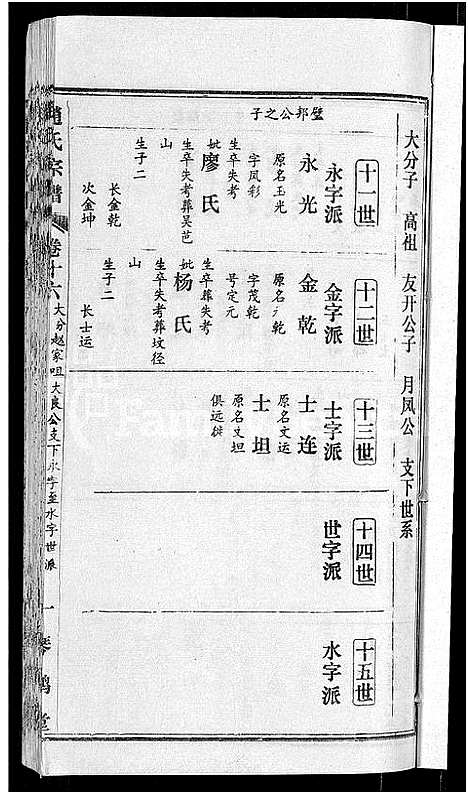 大分子 高祖 友开公子 月凤公 支下世系
十一世
永字派
璧邦公之子
永光
原名玉光
字凤彩
生卒失考
妣廖氏
生卒失考葬吴芭
山
生子二
长金乾
次金坤
十二世
金字派
金乾
字茂乾
号定元
生卒葬失考
妣杨氏
生卒失考葬坟径
山
生子二
长士运
十三世
士字派
士连
原名文运
士坦
原名文坦
俱远徙
十四世
世字派
十五世
水字派
赵氏宗谱 卷十六 大分赵家咀大良公支下永字至水字世派 一 琴鹤堂